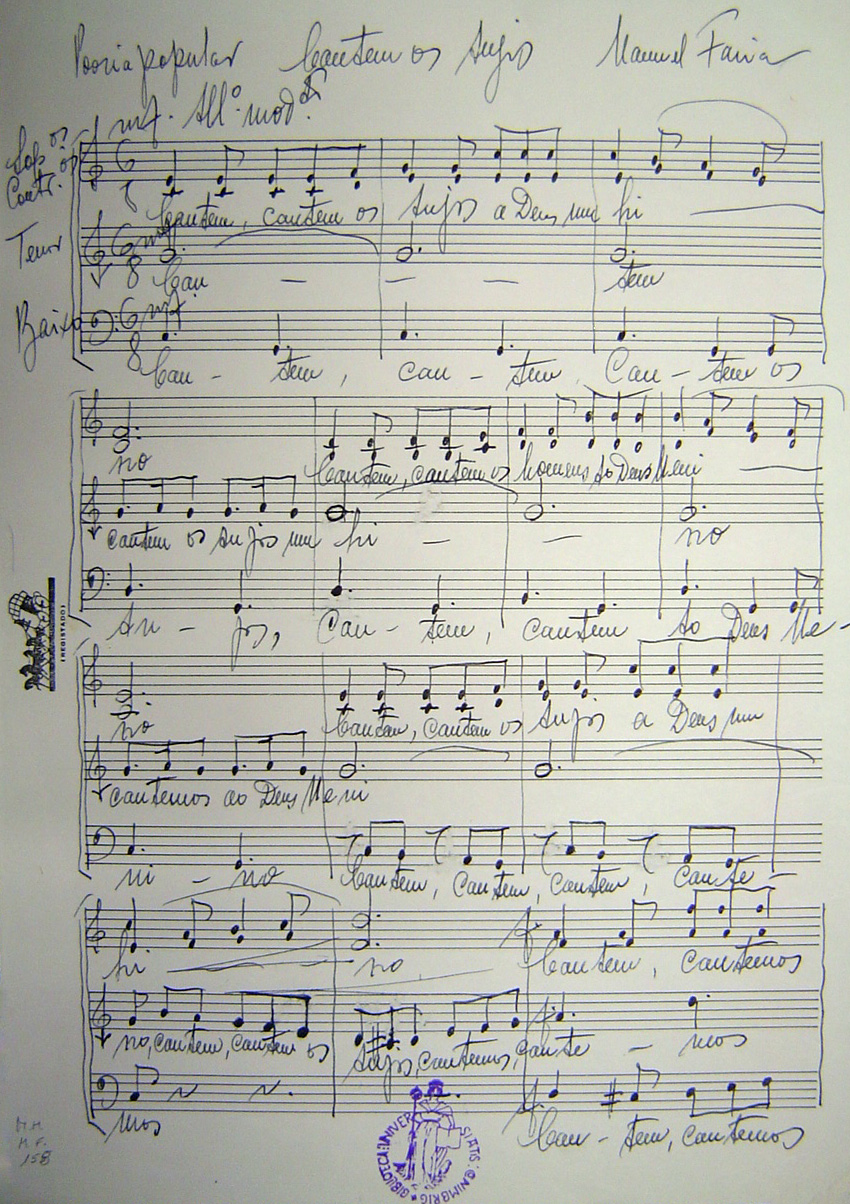 Poesia popular Cantem os Anjos Manuel Faria
mf. All.º mod.
Sop.os
Contr.
Cantem, cantem os Anjos a Deus um hi
Tenor
mf
Can - - - tem
Baixo
mf.
Can - tem, can - tem, Can - tem os
no Cantem, cantem os homens Ao Deus Meni
cantem os Anjos um hi - - no
An - jos, Can - tem, cantem Ao Deus Me -
no Cantem, cantem os Anjos a Deus um
cantemos ao Deus Meni
ni - no Cantem, Cantem, Cantem, Cante -
hi no, f Cantem, cantemos
no, cantem, cantem os Anjos, cantemos, cante - mos
f
mos f Can - tem, cantemos
(REGISTADO)
M.M.
M.F.
158
BIBLIOTECA:UNIVERSITATIS